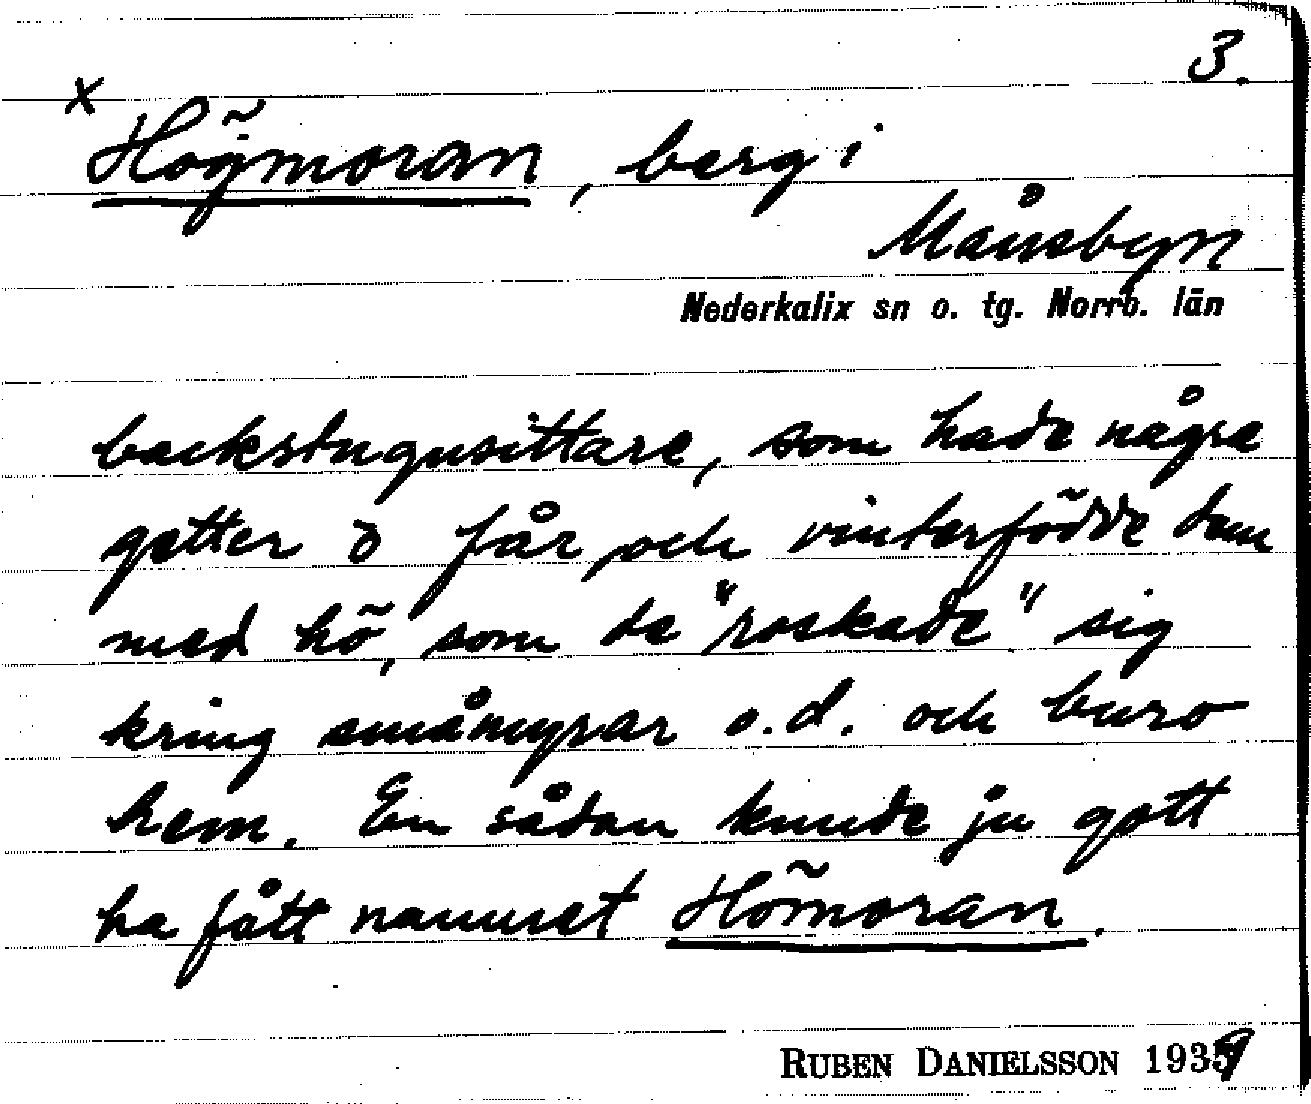 3.
x
Högmoran, berg i
Månsbyn
Nederkalix sn o. tg. Norrb. län
backstugusittare, som hade några
getter o får, och vinterfödde dem
med hö, som de "roskade" sig
kring småmyrar o.d. och buro
hem. En sådan kunde ju gott
ha fått namnet Hömoran.
RUBEN DANIELSSON 1939